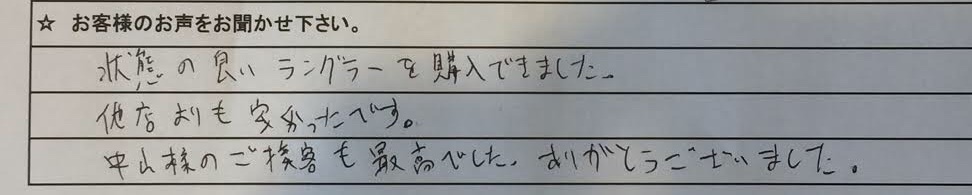 ☆ お客様のお声をお聞かせ下さい。
状態の良いラングラーを購入できました。
他店よりも安かったです。
中山様のご接客も最高でした。ありがとうございました。